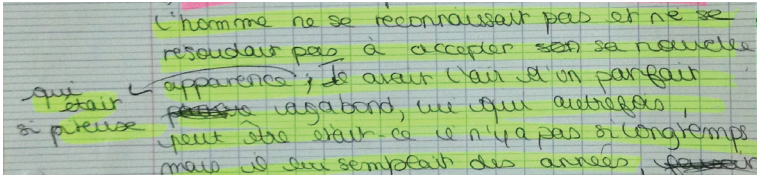 L'homme ne se reconnaissait pas et ne se
résoudait pas à accepter sa nouvelle
qui était si piteuse
apparence ; Il avait l'air d'un parfait
vagabond, lui qui autrefois,
peut être était-ce il n'y a pas si longtemps
mais il lui semblait des années,